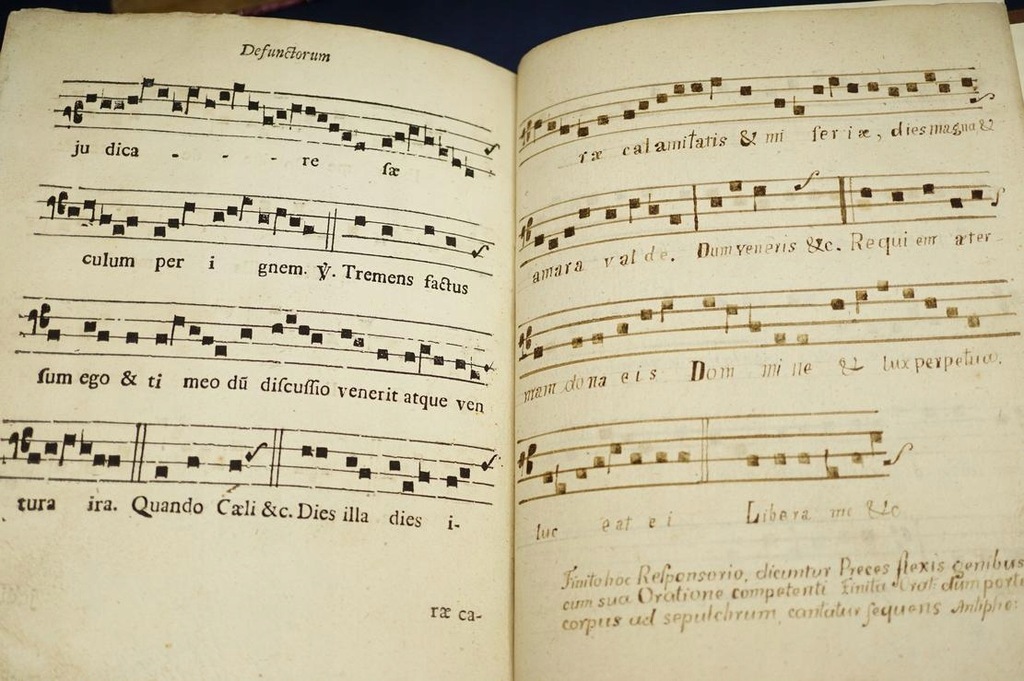 Defunctorum
ju dica - - - re sæ
culum per i gnem. ℣. Tremens factus
sum ego & ti meo dū discussio venerit atque ven
tura ira. Quando Cæli &c. Dies illa dies i-
ræ ca-
ræ calamitatis & mi seriæ, dies magna &
amara valde. Dum veneris &c. Requi em æter-
nam dona eis Dom mi ne & lux perpetua.
luc eat ei Libera me &c
Finito hoc Responsorio, dicuntur Preces flexis genibus
cum sua Oratione competenti Finita Orat: dum porta
corpus ad sepulchrum, cantatur sequens Antiphō: